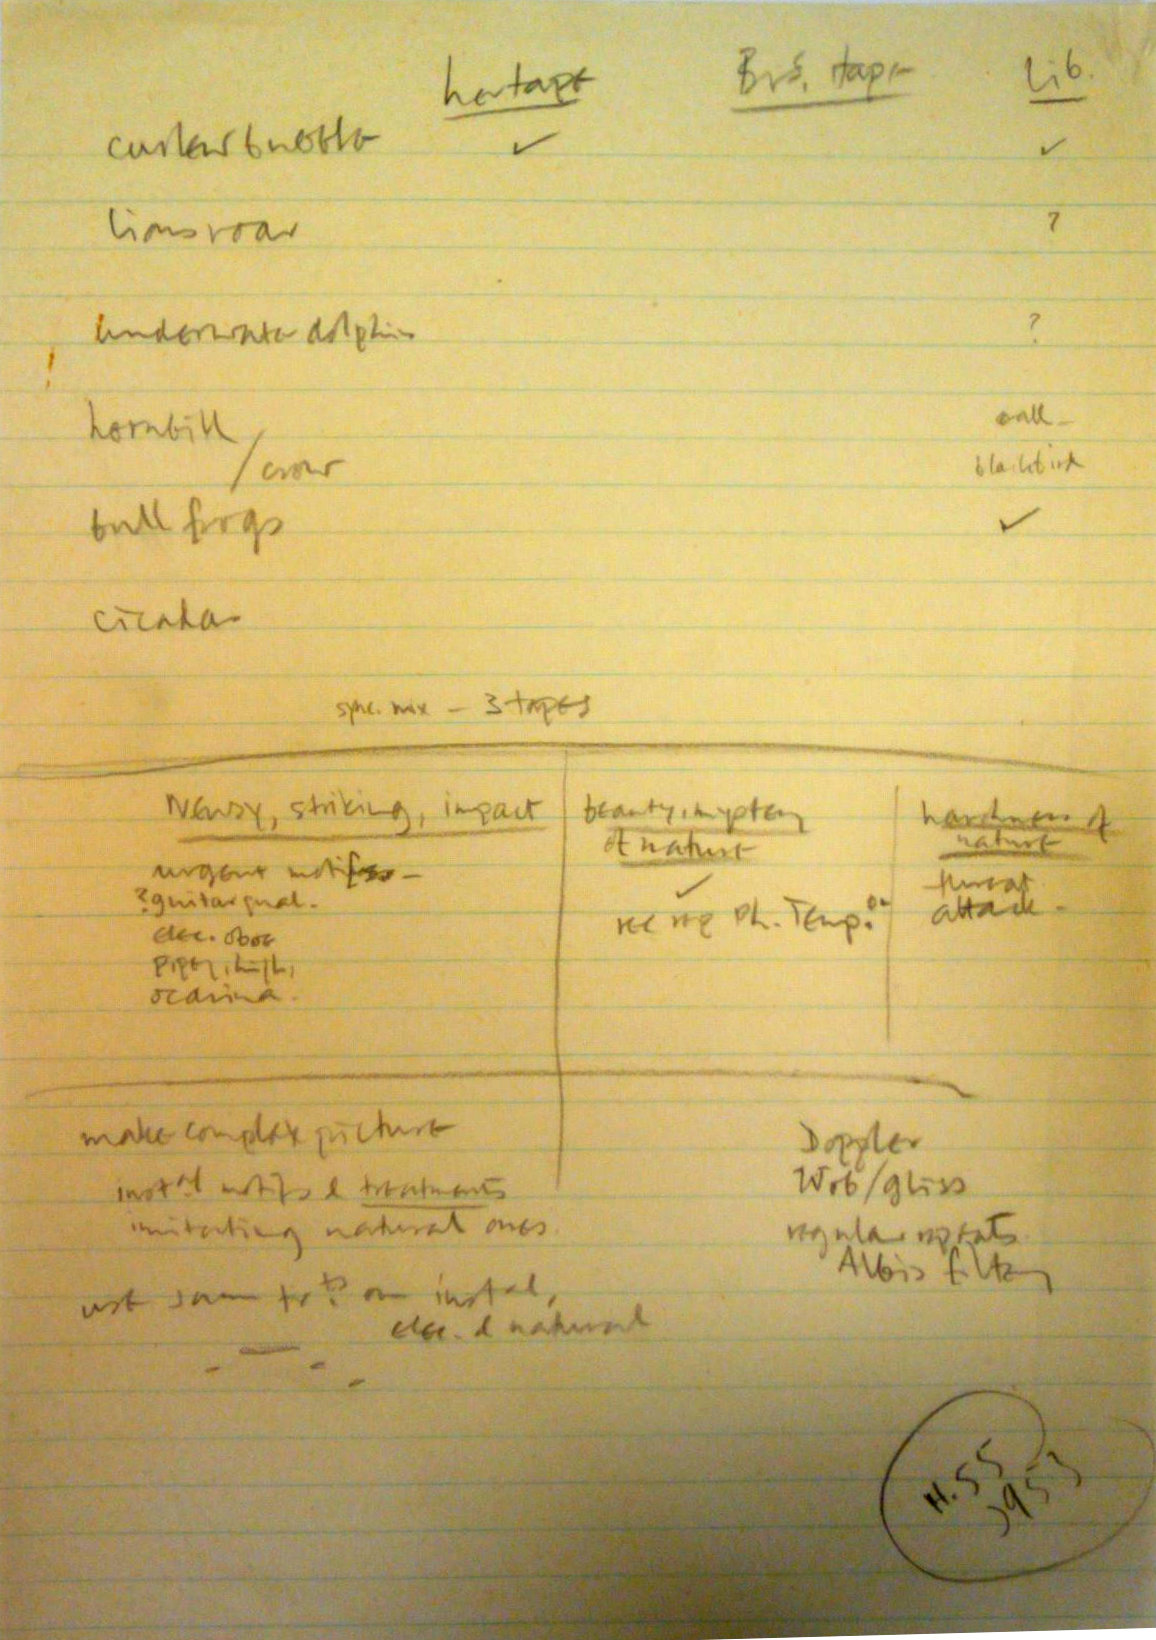 her tape Brs. tape Lib.
curlew bubble ✓ ✓
lions roar ?
underwater dolphins ?
!
hornbill call -
/ crow blackbird
bull frogs ✓
cicada
sync. mix - 3 tapes
Newsy, striking, impact
urgent motifs -
? guitar qual.
elec. oboe
pipey, high,
ocarina.
beauty, mystery
of nature
✓
rec req Ph. Temp.
hardness of
nature
threat
attack -
make complex picture
inst al motifs & treatments
imitating natural ones.
use same on instal,
elec. & natural
Doppler
Wob/gliss
regular repeats
Albis filter
H.55
3953